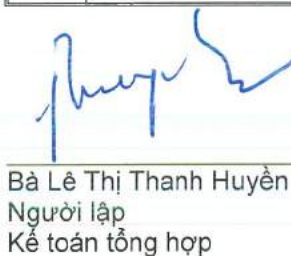 Bà Lê Thị Thanh Huyền
Người lập
Kế toán tổng hợp